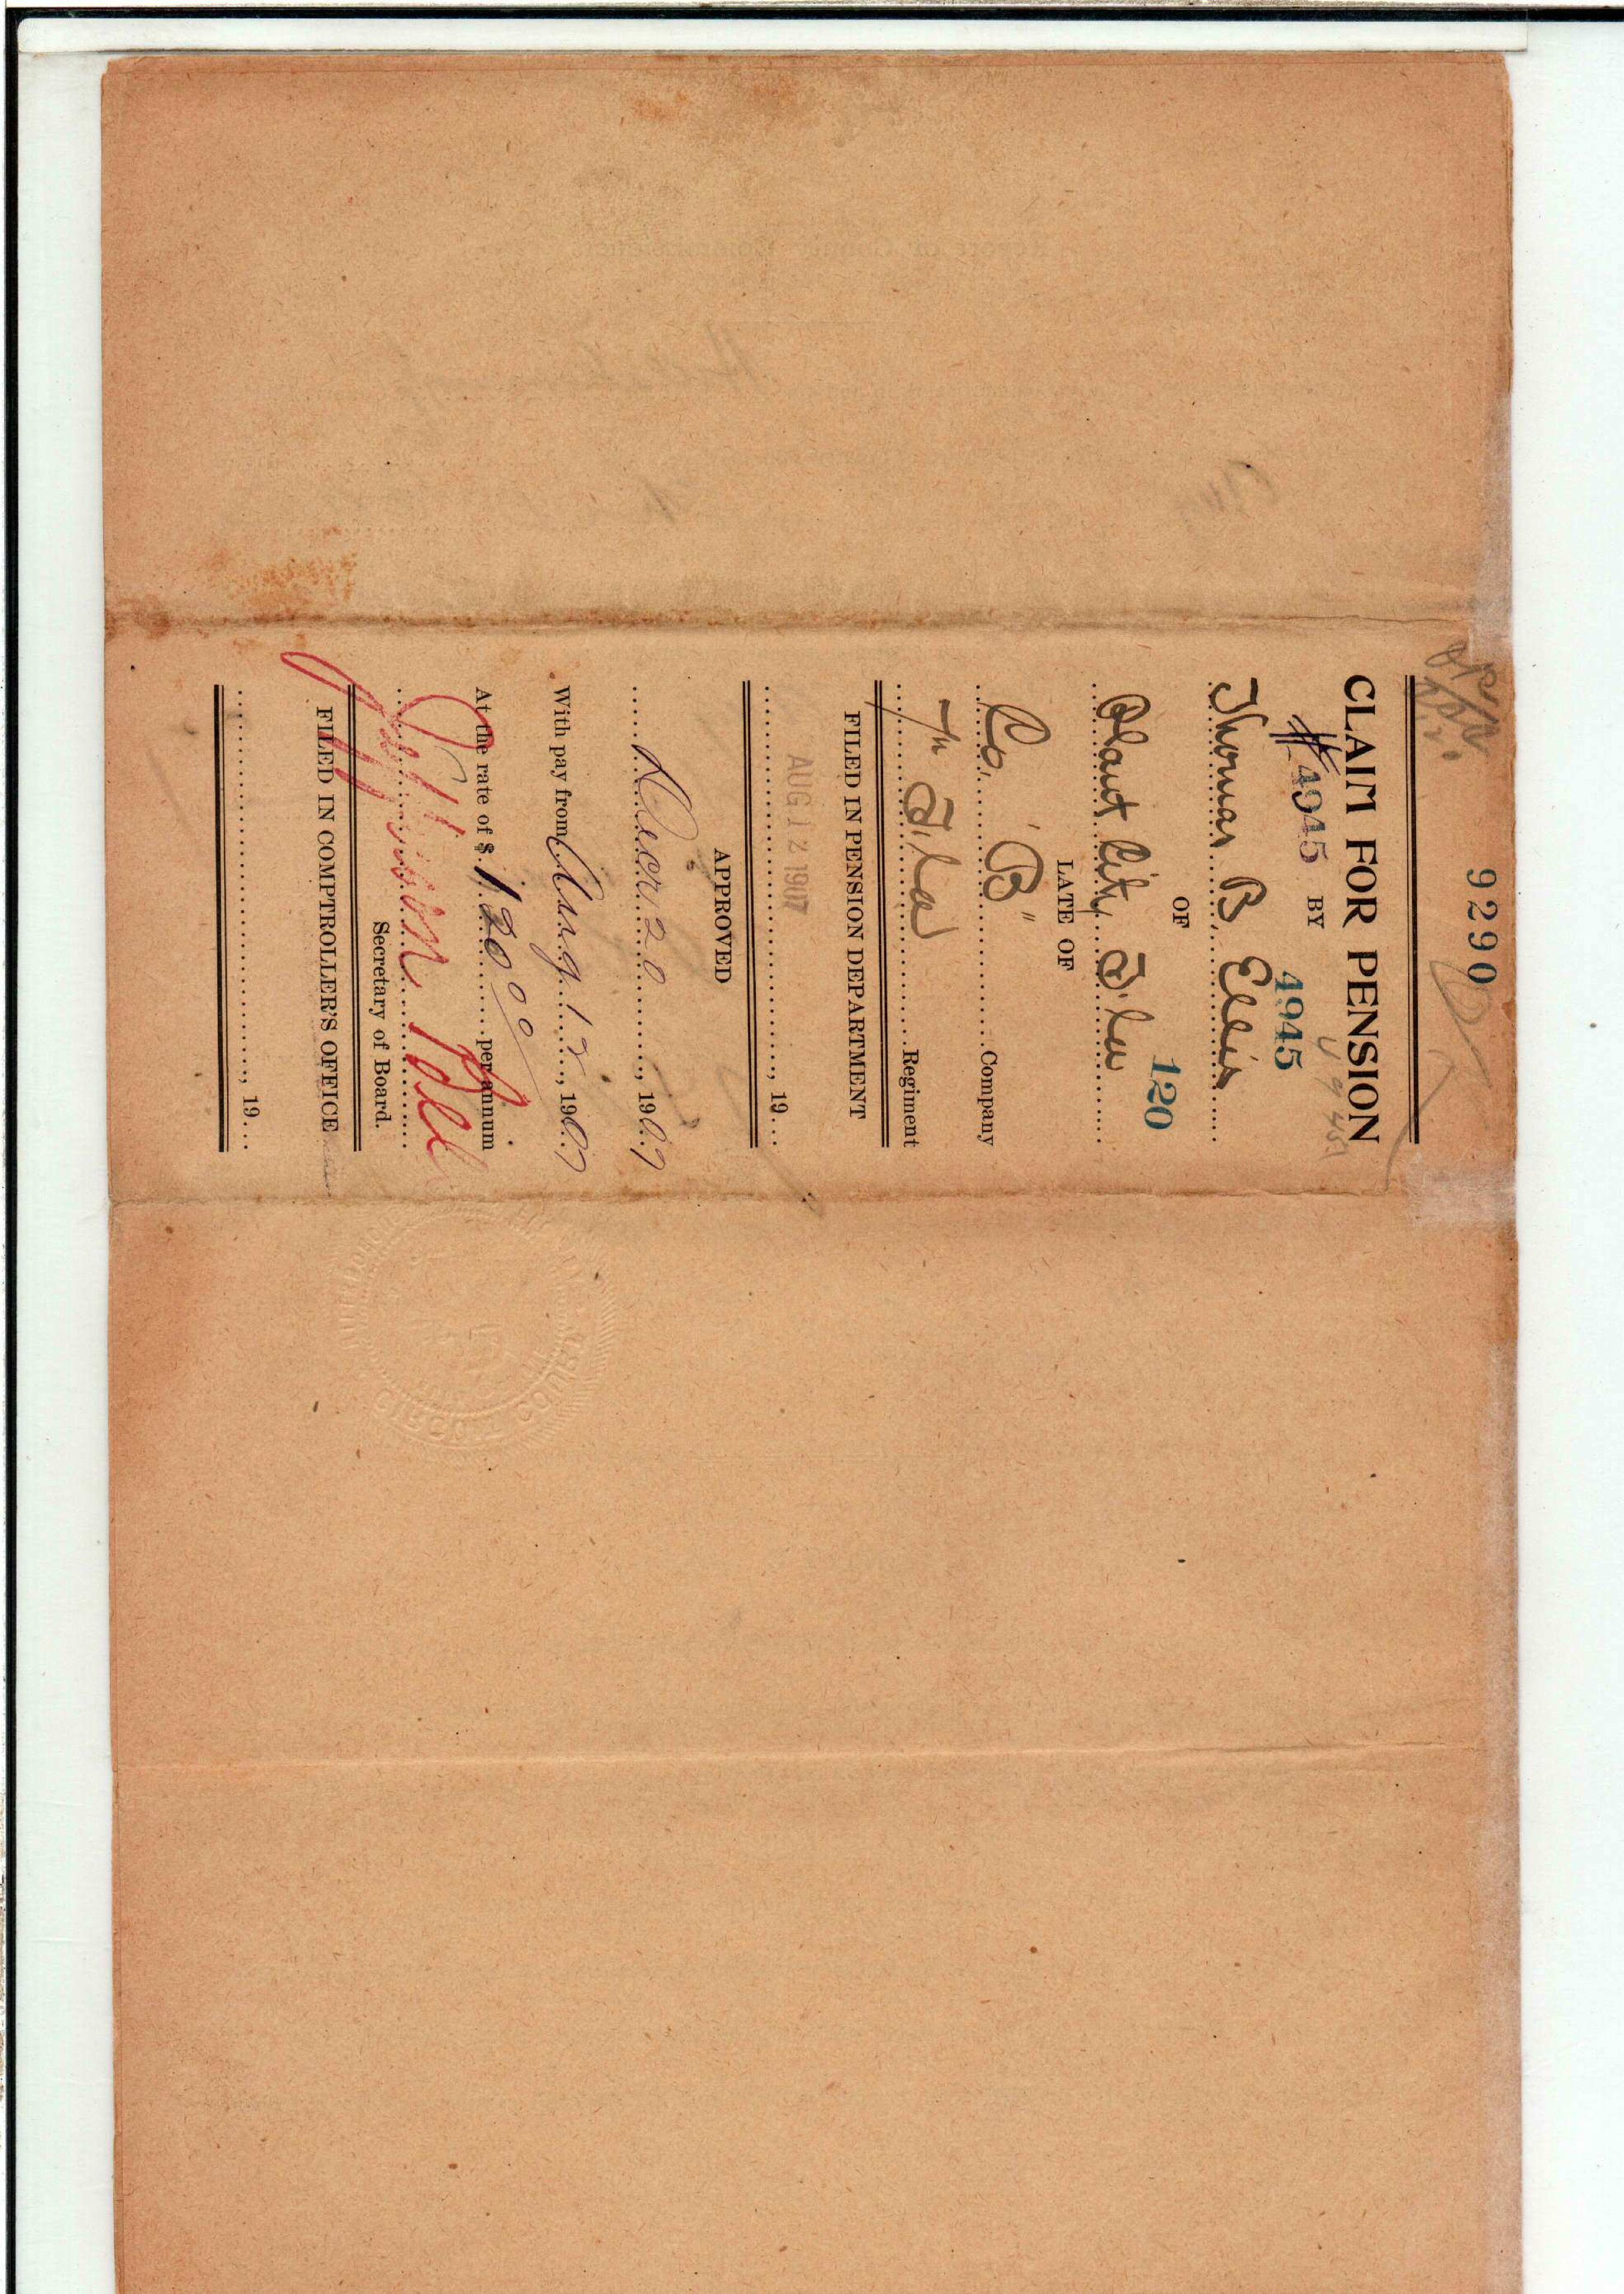 9290
CLAIM FOR PENSION
# 4945 BY 4945
Thomas B. Ellis
OF
120
Plant City, Fla
LATE OF
Co. "B" Company
7th Fla Regiment
FILED IN PENSION DEPARTMENT
AUG 12 1907
, 19
APPROVED
Decr 20, 1907
With pay from Aug 12, 1907
At the rate of $ 120 00 per annum
Jefferson Bell
Secretary of Board.
FILED IN COMPTROLLER'S OFFICE
, 19
CIRCUIT COURT